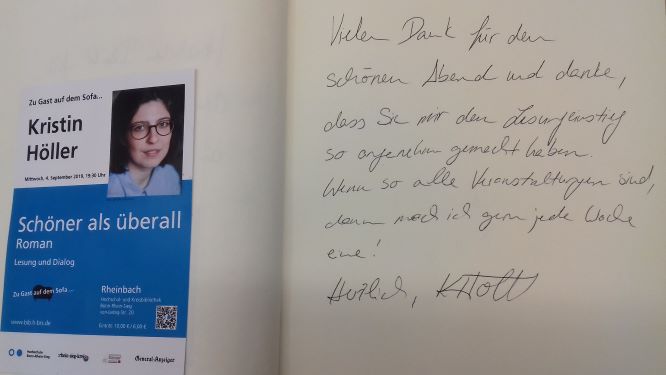 Zu Gast auf dem Sofa...
Kristin
Höller
Mittwoch, 4. September 2019, 19:30 Uhr
Schöner als überall
Roman
Lesung und Dialog
Zu Gast auf dem Sofa...
Rheinbach
Hochschul- und Kreisbibliothek
Bonn-Rhein-Sieg
von-Liebig-Str. 20
Eintritt: 10,00 € / 6,00 €
www.bib.h-brs.de
Hochschule
Bonn-Rhein-Sieg
rhein-sieg-kreis
General-Anzeiger
Vielen Dank für den
schönen Abend und danke,
dass Sie mir den Lesungseinstieg
so angenehm gemacht haben.
Wenn so alle Veranstaltungen sind,
dann mach ich gern jede Woche
eine!
Herzlich, KHöll